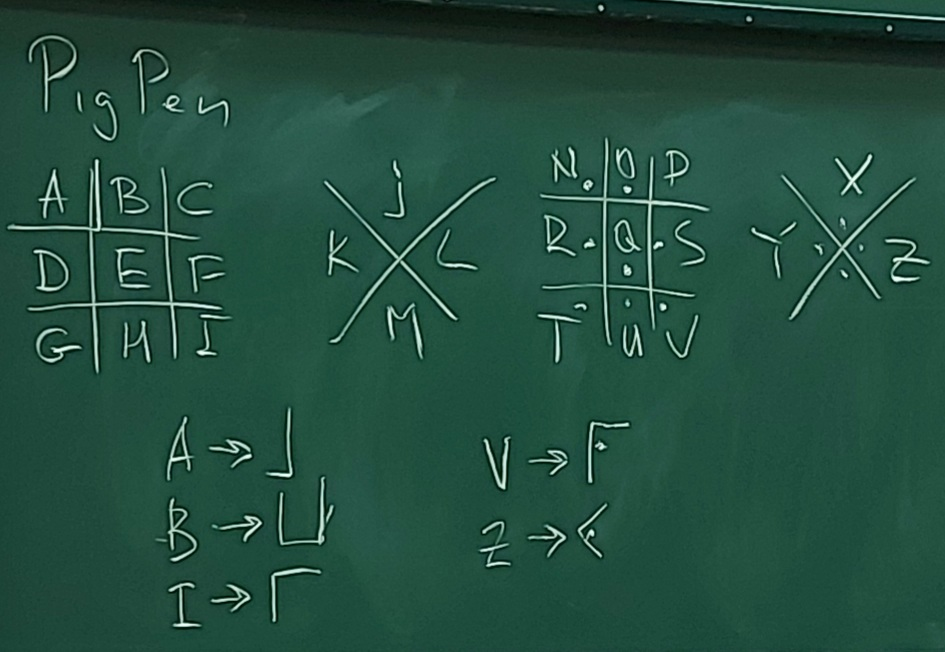 PigPen
A B C
D E F
G H I
J
K L
M
N O P
R Q S
T U V
X
Y Z
A → ⅃
B → ⊔
I → Γ
V → Γ
Z → <